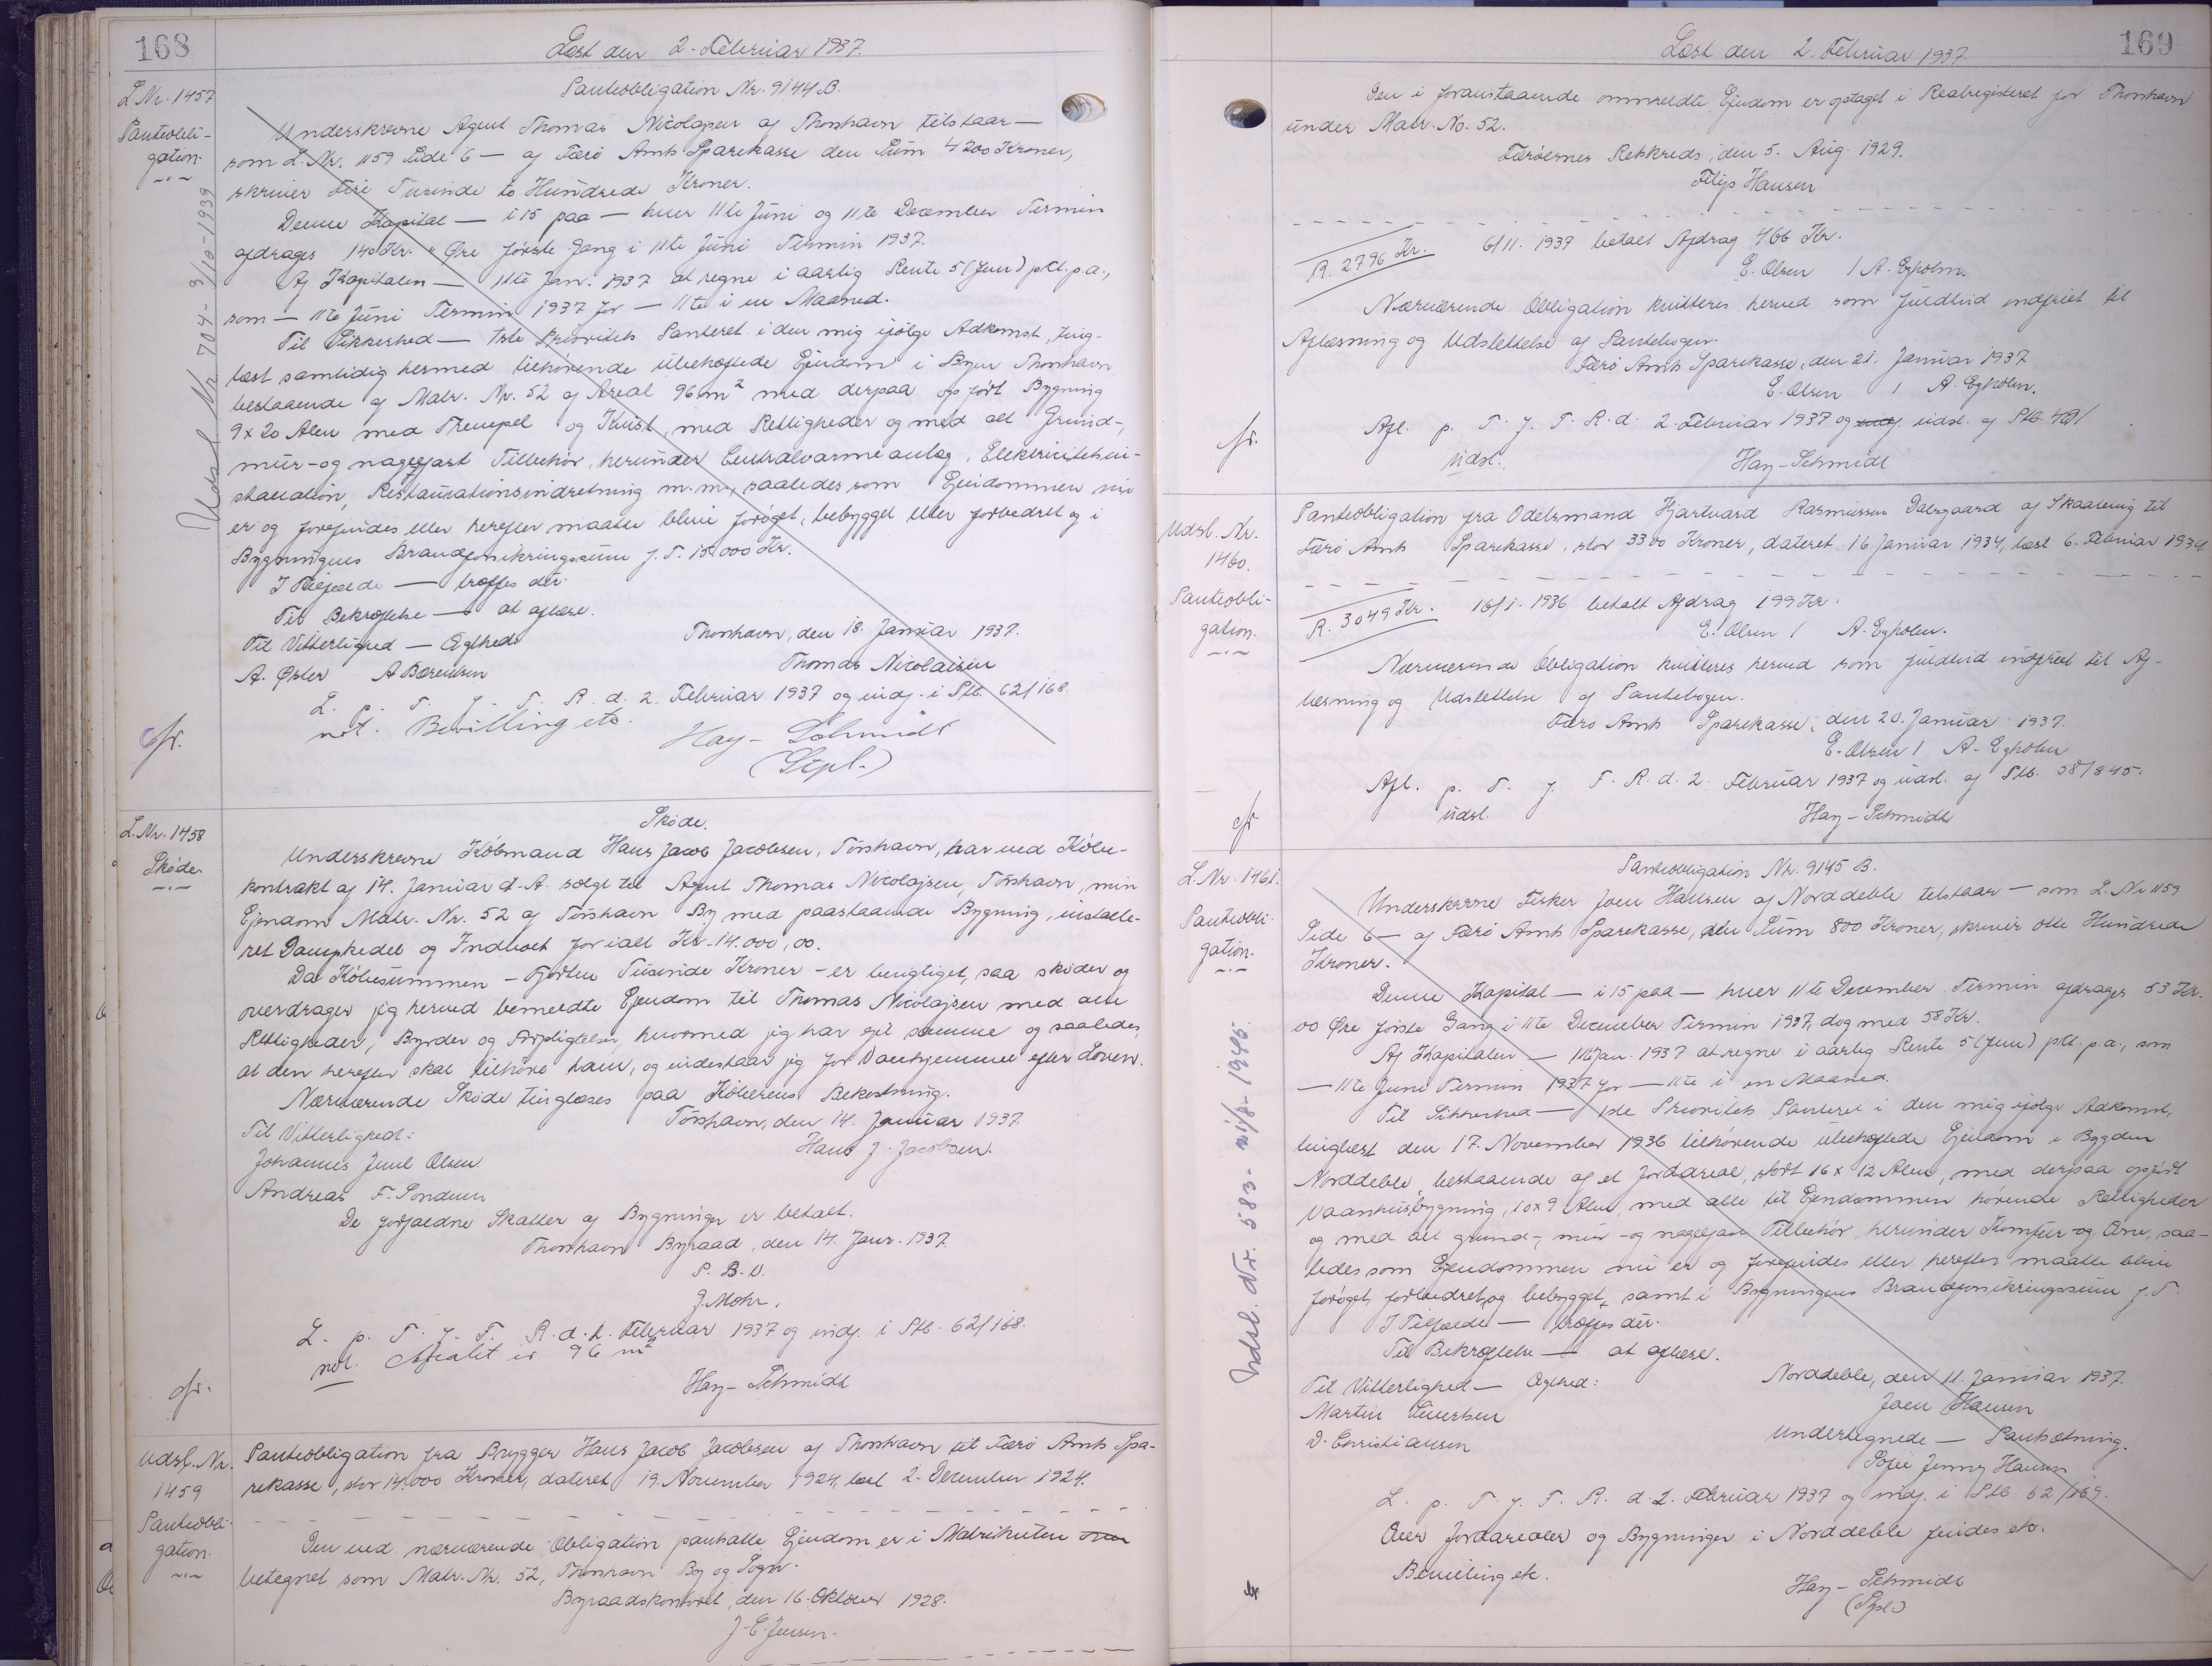 168
Læst den 2. Februar 1937.
L Nr. 1457
Panteobli-
gation.
Udsl Nr 704 - 3/10-1939
Panteobligation Nr. 9144 B.
Underskrevne Agent Thomas Nicolajsen af Thorshavn tilstaar —
som L. Nr. 1159 Side 6 — af Færø Amts Sparekasse den Sum 4200 Kroner,
skriver Fire Tusinde to Hundrede Kroner.
Denne Kapital — i 15 paa — hver 11te Juni og 11te December Termin
afdrages 140 Kr. " Øre første Gang i 11te Juni Termin 1937.
Af Kapitalen — 11te Jan. 1937 at regne i aarlig Rente 5 (fem) pCt. p.a.,
som — 11te Juni Termin 1937 for — 11te i en Maaned.
Til Sikkerhed — 1ste Prioritets Panteret i den mig ifølge Adkomst, ting-
læst samtidig hermed tilhørende ubehæftede Ejendom i Byen Thorshavn
bestaaende af Matr. Nr. 52 af Areal 96 m² med derpaa opført Bygning
9 x 20 Alen med Frempel og Kvist, med Rettigheder og med alt Grund-,
mur- og nagelfast Tilbehør, herunder Centralvarmeanlæg, Elektricitetsin-
stallation, Restaurationsindretning m.m., saaledes som Ejendommen nu
er og forefindes eller herefter maatte blive forøget, bebygget eller forbedret og i
Bygningens Brandforsikringssum f. T. 15.000 Kr.
I Tilfælde — træffes der.
Til Bekræftelse — at aflæse.
Til Vitterlighed — Ægthed:
Thorshavn, den 18. Januar 1937.
A. Øster A Bærentsen
Thomas Nicolaisen
L. p. T. f. F. R. d. 2. Februar 1937 og indf. i Ptb. 62/168.
not. Bevilling etc.
Hay-Schmidt
(Stpl.)
cfr.
L. Nr. 1458
Skøde
Skøde.
Underskrevne Købmand Hans Jacob Jacobsen, Tórshavn, har ved Købe-
kontrakt af 14. Januar d. A. solgt til Agent Thomas Nicolajsen, Tórshavn, min
Ejendom Matr. Nr. 52 af Tórshavn By med paastaaende Bygning, installe-
ret Dampkedel og Indboet for ialt Kr. 14.000,00.
Da Købesummen - Fjorten Tusinde Kroner - er berigtiget, saa skøder og
overdrager jeg herved bemeldte Ejendom til Thomas Nicolajsen med alle
Rettigheder, Byrder og Forpligtelser, hvormed jeg har ejet samme og saaledes,
at den herefter skal tilhøre ham, og indestaar jeg for Vanhjemmel efter Loven.
Nærværende Skøde tinglæses paa Køberens Bekostning.
Tórshavn, den 14. Januar 1937.
Til Vitterlighed:
Hans J. Jacobsen.
Johannes Juul Olsen
Andreas F. Sondum
De forfaldne Skatter af Bygninger er betalt.
Thorshavn Byraad, den 14. Janr. 1937.
P. B. V.
J. Mohr.
L. p. T. f. F. R. d. 2. Februar 1937 og indf. i Ptb. 62/168.
not. Arealet er 96 m²
Hay-Schmidt
cfr.
Udsl. Nr.
1459
Panteobli-
gation.
Panteobligation fra Brygger Hans Jacob Jacobsen af Thorshavn til Færø Amts Spa-
rekasse, stor 14.000 Kroner, dateret 19. November 1924, læst 2. December 1924.
Den ved nærværende Obligation pantsatte Ejendom er i Matrikulen
betegnet som Matr. Nr. 52, Thorshavn By og Sogn.
Byraadskontoret, den 16. Oktober 1928.
J. C. Jensen.
169
Læst den 2. Februar 1937.
Den i foranstaaende ommeldte Ejendom er optaget i Realregisteret for Thorshavn
under Matr. No. 52.
Færøernes Retskreds, den 5. Aug. 1929.
Filip Hansen
R. 2796 Kr. 6/11. 1937 betalt Afdrag 466 Kr.
E. Olsen / A. Egholm.
Nærværende Obligation kvitteres herved som fuldtud indfriet til
Aflæsning og Udslettelse af Pantebogen.
Færø Amts Sparekasse, den 21. Januar 1937
E. Olsen / A. Egholm.
cfr.
Afl. p. T. f. F. R. d. 2. Februar 1937 og udsl. af Ptb. 49/
udsl.
Hay-Schmidt
Udsl. Nr.
1460.
Panteobli-
gation.
Panteobligation fra Odelsmand Hjartvard Rasmussen Dalsgaard af Skaalevig til
Færø Amts Sparekasse, stor 3300 Kroner, dateret 16 Januar 1934, læst 6. Februar 1934
R. 3049 Kr. 16/1. 1936 betalt Afdrag 199 Kr.
E. Olsen / A. Egholm.
Nærværende Obligation kvitteres herved som fuldtud indfriet til Af-
læsning og Udslettelse af Pantebogen.
Færø Amts Sparekasse, den 20. Januar 1937.
E. Olsen / A. Egholm
Afl. p. T. f. F. R. d. 2. Februar 1937 og udsl. af Ptb. 58/845.
udsl.
Hay-Schmidt
cfr
L. Nr. 1461.
Panteobli-
gation.
Udsl. Nr. 583 - 11/8-1945.
Panteobligation Nr. 9145 B.
Underskrevne Fisker Joen Hansen af Norddeble tilstaar — som L. Nr 1159
Side 6 — af Færø Amts Sparekasse, den Sum 800 Kroner, skriver otte Hundrede
Kroner.
Denne Kapital — i 15 paa — hver 11te December Termin afdrages 53 Kr.
00 Øre første Gang i 11te December Termin 1937, dog med 58 Kr.
Af Kapitalen — 11te Jan. 1937 at regne i aarlig Rente 5 (fem) pCt. p.a., som
— 11te Juni Termin 1937 for — 11te i en Maaned.
Til Sikkerhed — 1ste Prioritets Panteret i den mig ifølge Adkomst,
tinglæst den 17. November 1936 tilhørende ubehæftede Ejendom i Bygden
Norddeble, bestaaende af et Jordareal, stort 16 x 12 Alen, med derpaa opført
Vaaningsbygning, 10 x 9 Alen, med alle til Ejendommen hørende Rettigheder
og med alt grund-, mur- og nagelfast Tilbehør, herunder Komfur og Ovn, saa-
ledes som Ejendommen nu er og forefindes eller herefter maatte blive
forøget, forbedret og bebygget, samt i Bygningens Brandforsikringssum f. T.
I Tilfælde — træffes der.
Til Bekræftelse — at aflæse.
Til Vitterlighed — Ægthed:
Norddeble, den 11. Januar 1937.
Martin Sivertsen
Joen Hansen
D. Christiansen
Undertegnede — Pantsætning.
Sofie Jenny Hansen
L. p. T. f. F. R. d. 2. Februar 1937 og indf. i Ptb. 62/169.
Over Jordarealer og Bygninger i Norddeble findes etc.
Bevilling etc.
Hay-Schmidt
(Stpl.)